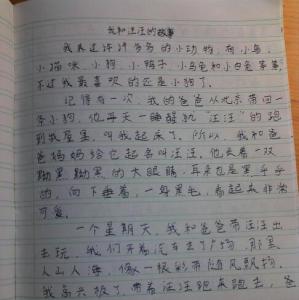 我和汪汪的故事
我养过许许多多的小动物，有小鸟、
小猫咪、小狗、小鸭子、小乌龟和小白兔等等，
不过我最喜欢的还是小狗了。
记得有一次，我的爸爸从北京带回一
条小狗，他每天一睡醒就“汪汪”的跑
到我屋里，叫我起床了。所以，我和爸
爸妈妈给它起名叫汪汪。他长着一双
黝黑黝黑的大眼睛，耳朵也是黑乎乎
的，向下垂着，一身黑毛，看起来非常
可爱。
一个星期天，我和爸爸带汪汪出
去玩，我们开着汽车去了广场，那里
人山人海，像一根彩带随风飘扬。
我高兴极了，带着汪汪跑来跑去，爸